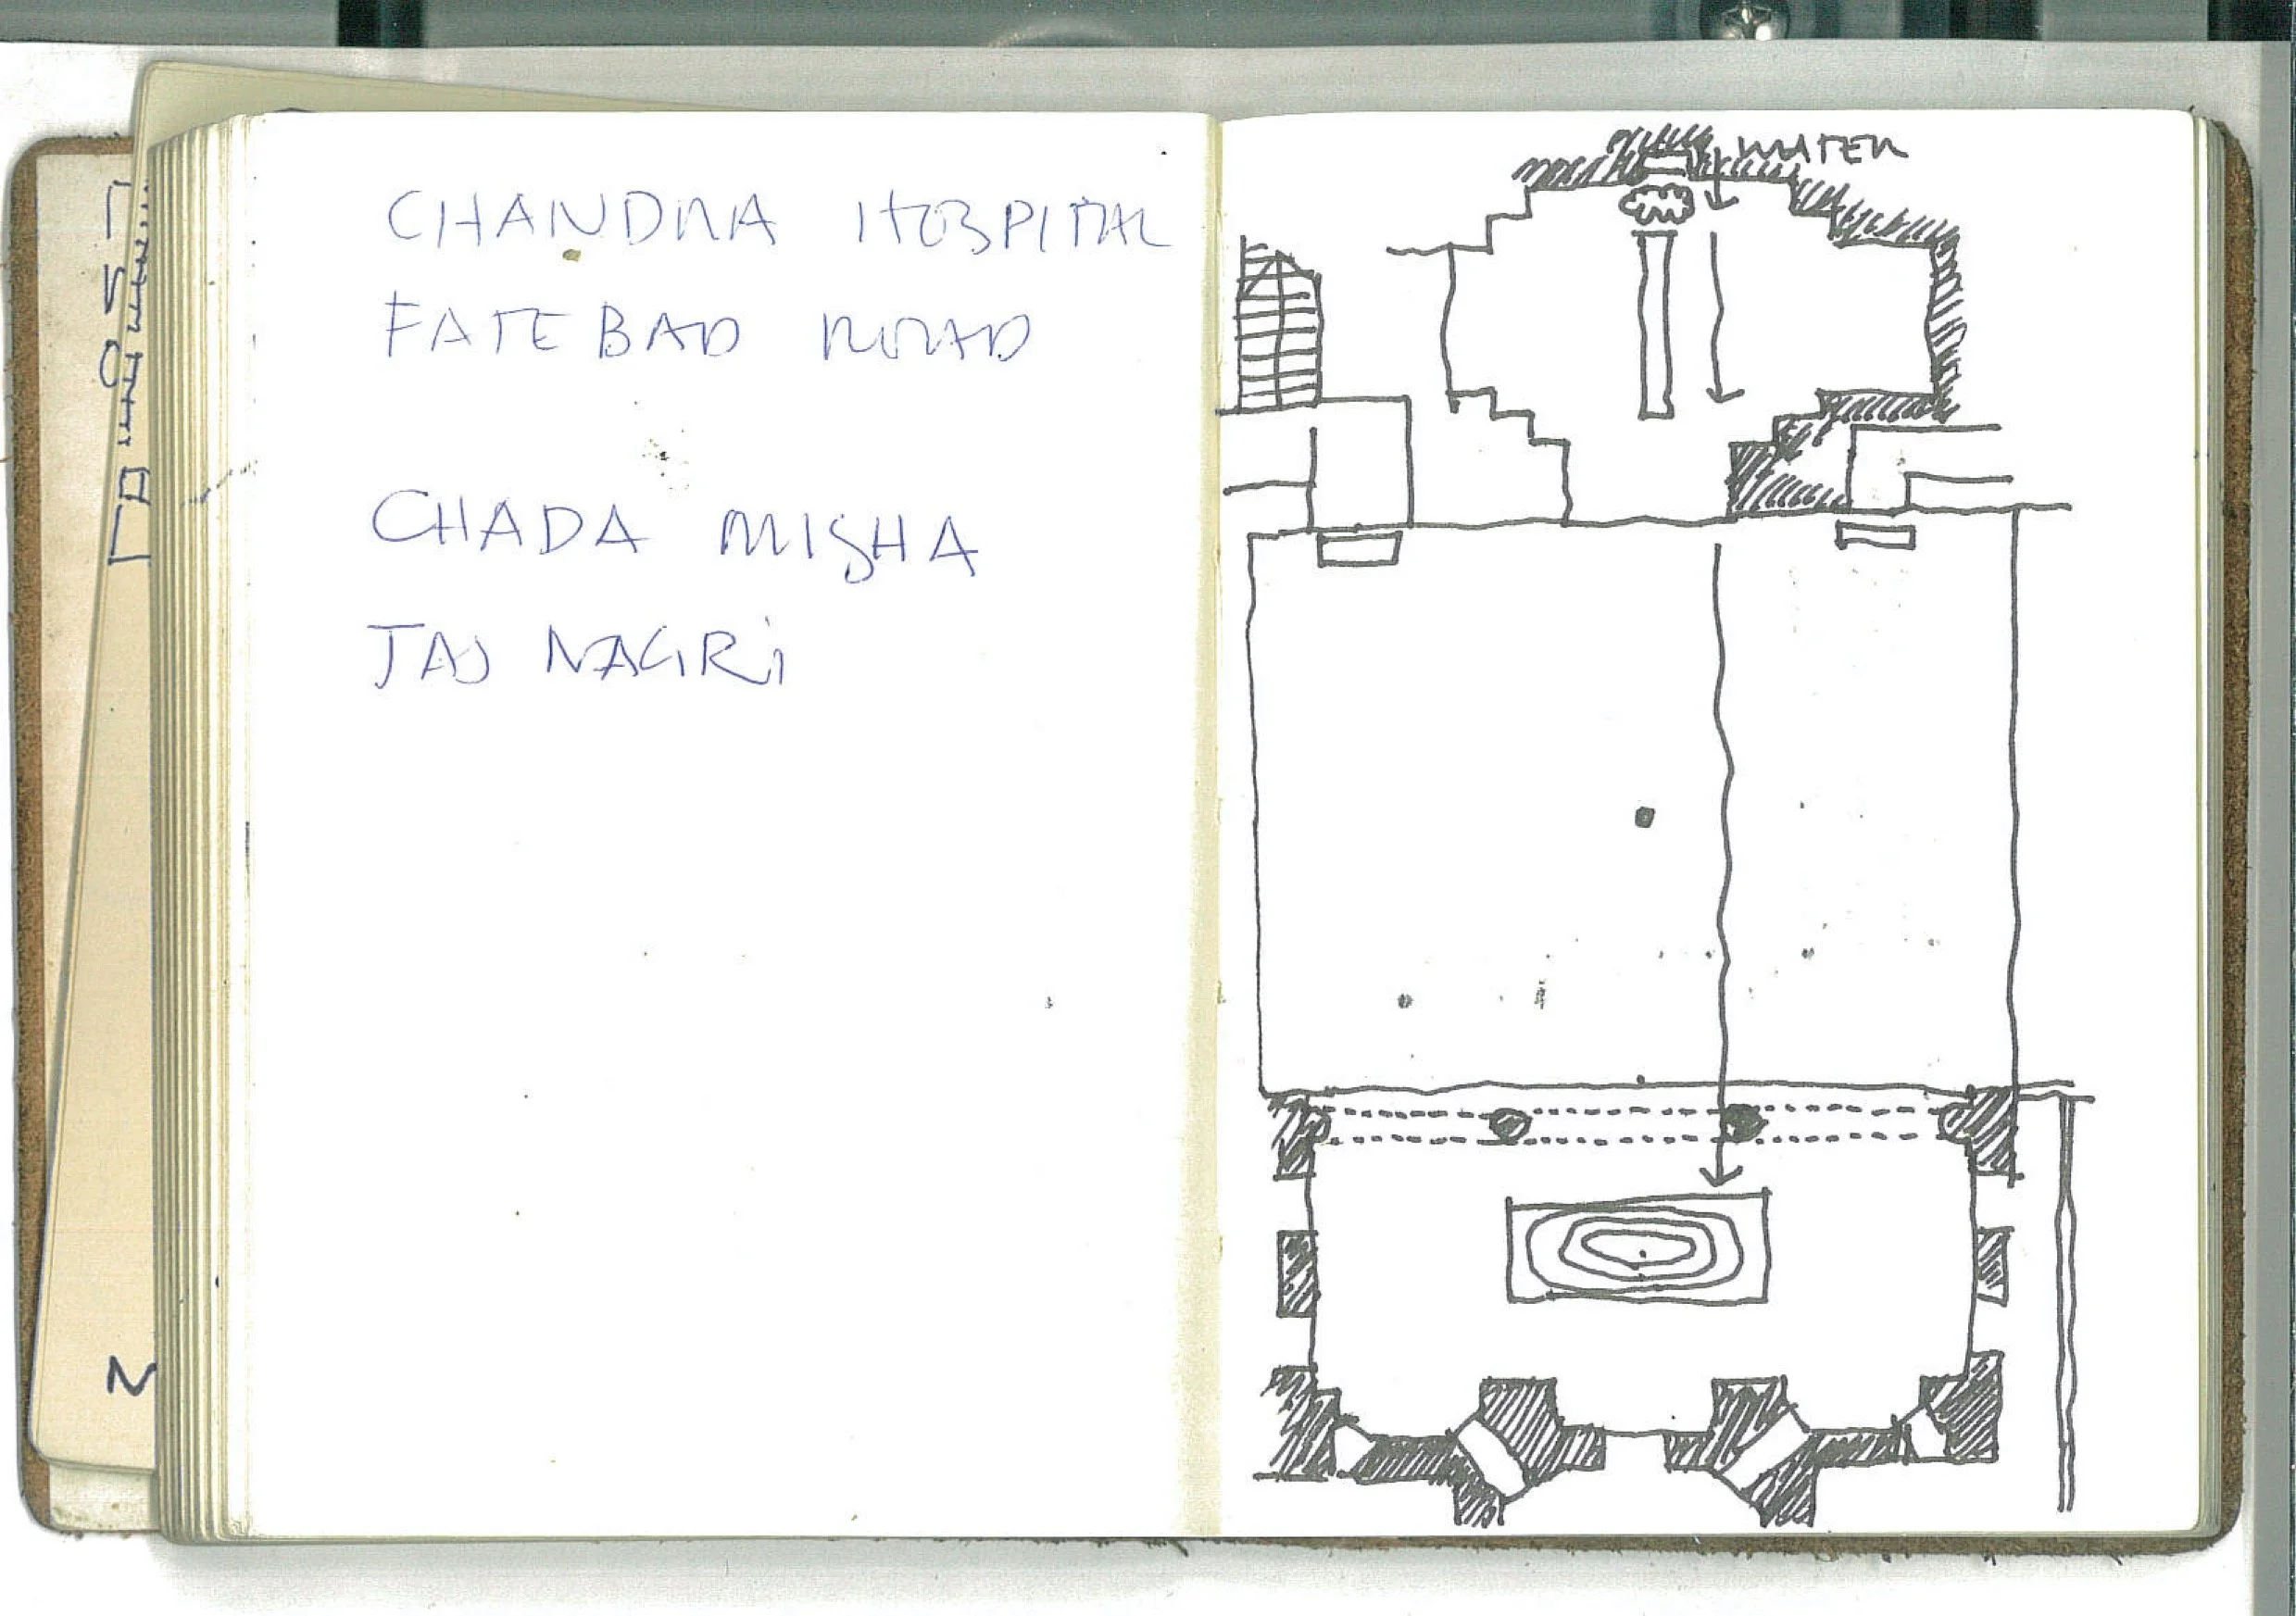 CHANDRA HOSPITAL
FATEBAD ROAD
CHADA MISHA
TAJ NAGRi
WATER